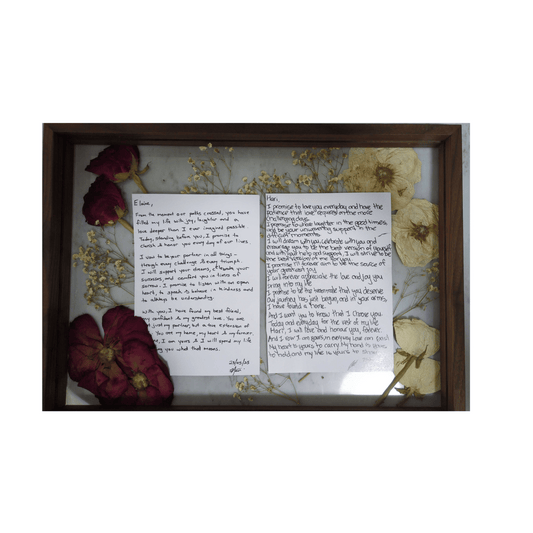 Elaine,
From the moment our paths crossed, you have
filled my life with joy, laughter and a
love deeper than I ever imagined possible
Today, standing before you, I promise to
cherish & honor you every day of our lives
I vow to be your partner in all things -
through every challenge & every triumph
I will support your dreams, celebrate your
success, and comfort you in times of
sorrow. I promise to listen with an open
heart, to speak in kindness and
to always be understanding.
With you, I have found my best friend,
my confidant & my greatest love. You are
just my partner, but a true extension of
You are my home, my heart & my forever
I am yours & I will spend my life
you what that means.
Mari,
I promise to love you everyday and have the
patience that love requires in the more
challenging days.
I promise to share laughter in the good times
and be your unwavering support in the
difficult moments.
I will dream with you, celebrate with you and
encourage you to be the best version of yourself
and with your help and support, I will strive to be
the best version of me for you.
I promise I'll forever aim to be the source of
your greatest joy
I will forever appreciate the love and joy you
bring into my life
I promise to be the teammate that you deserve
Our journey has just begun, and in your arms,
I have found a home.
And I want you to know that I choose you.
Today and everyday for the rest of my life
Mari, I will love and honour you, forever.
And now I am yours in everyway love can exist
My heart is yours to carry My hand is yours
to hold and my life is yours to share